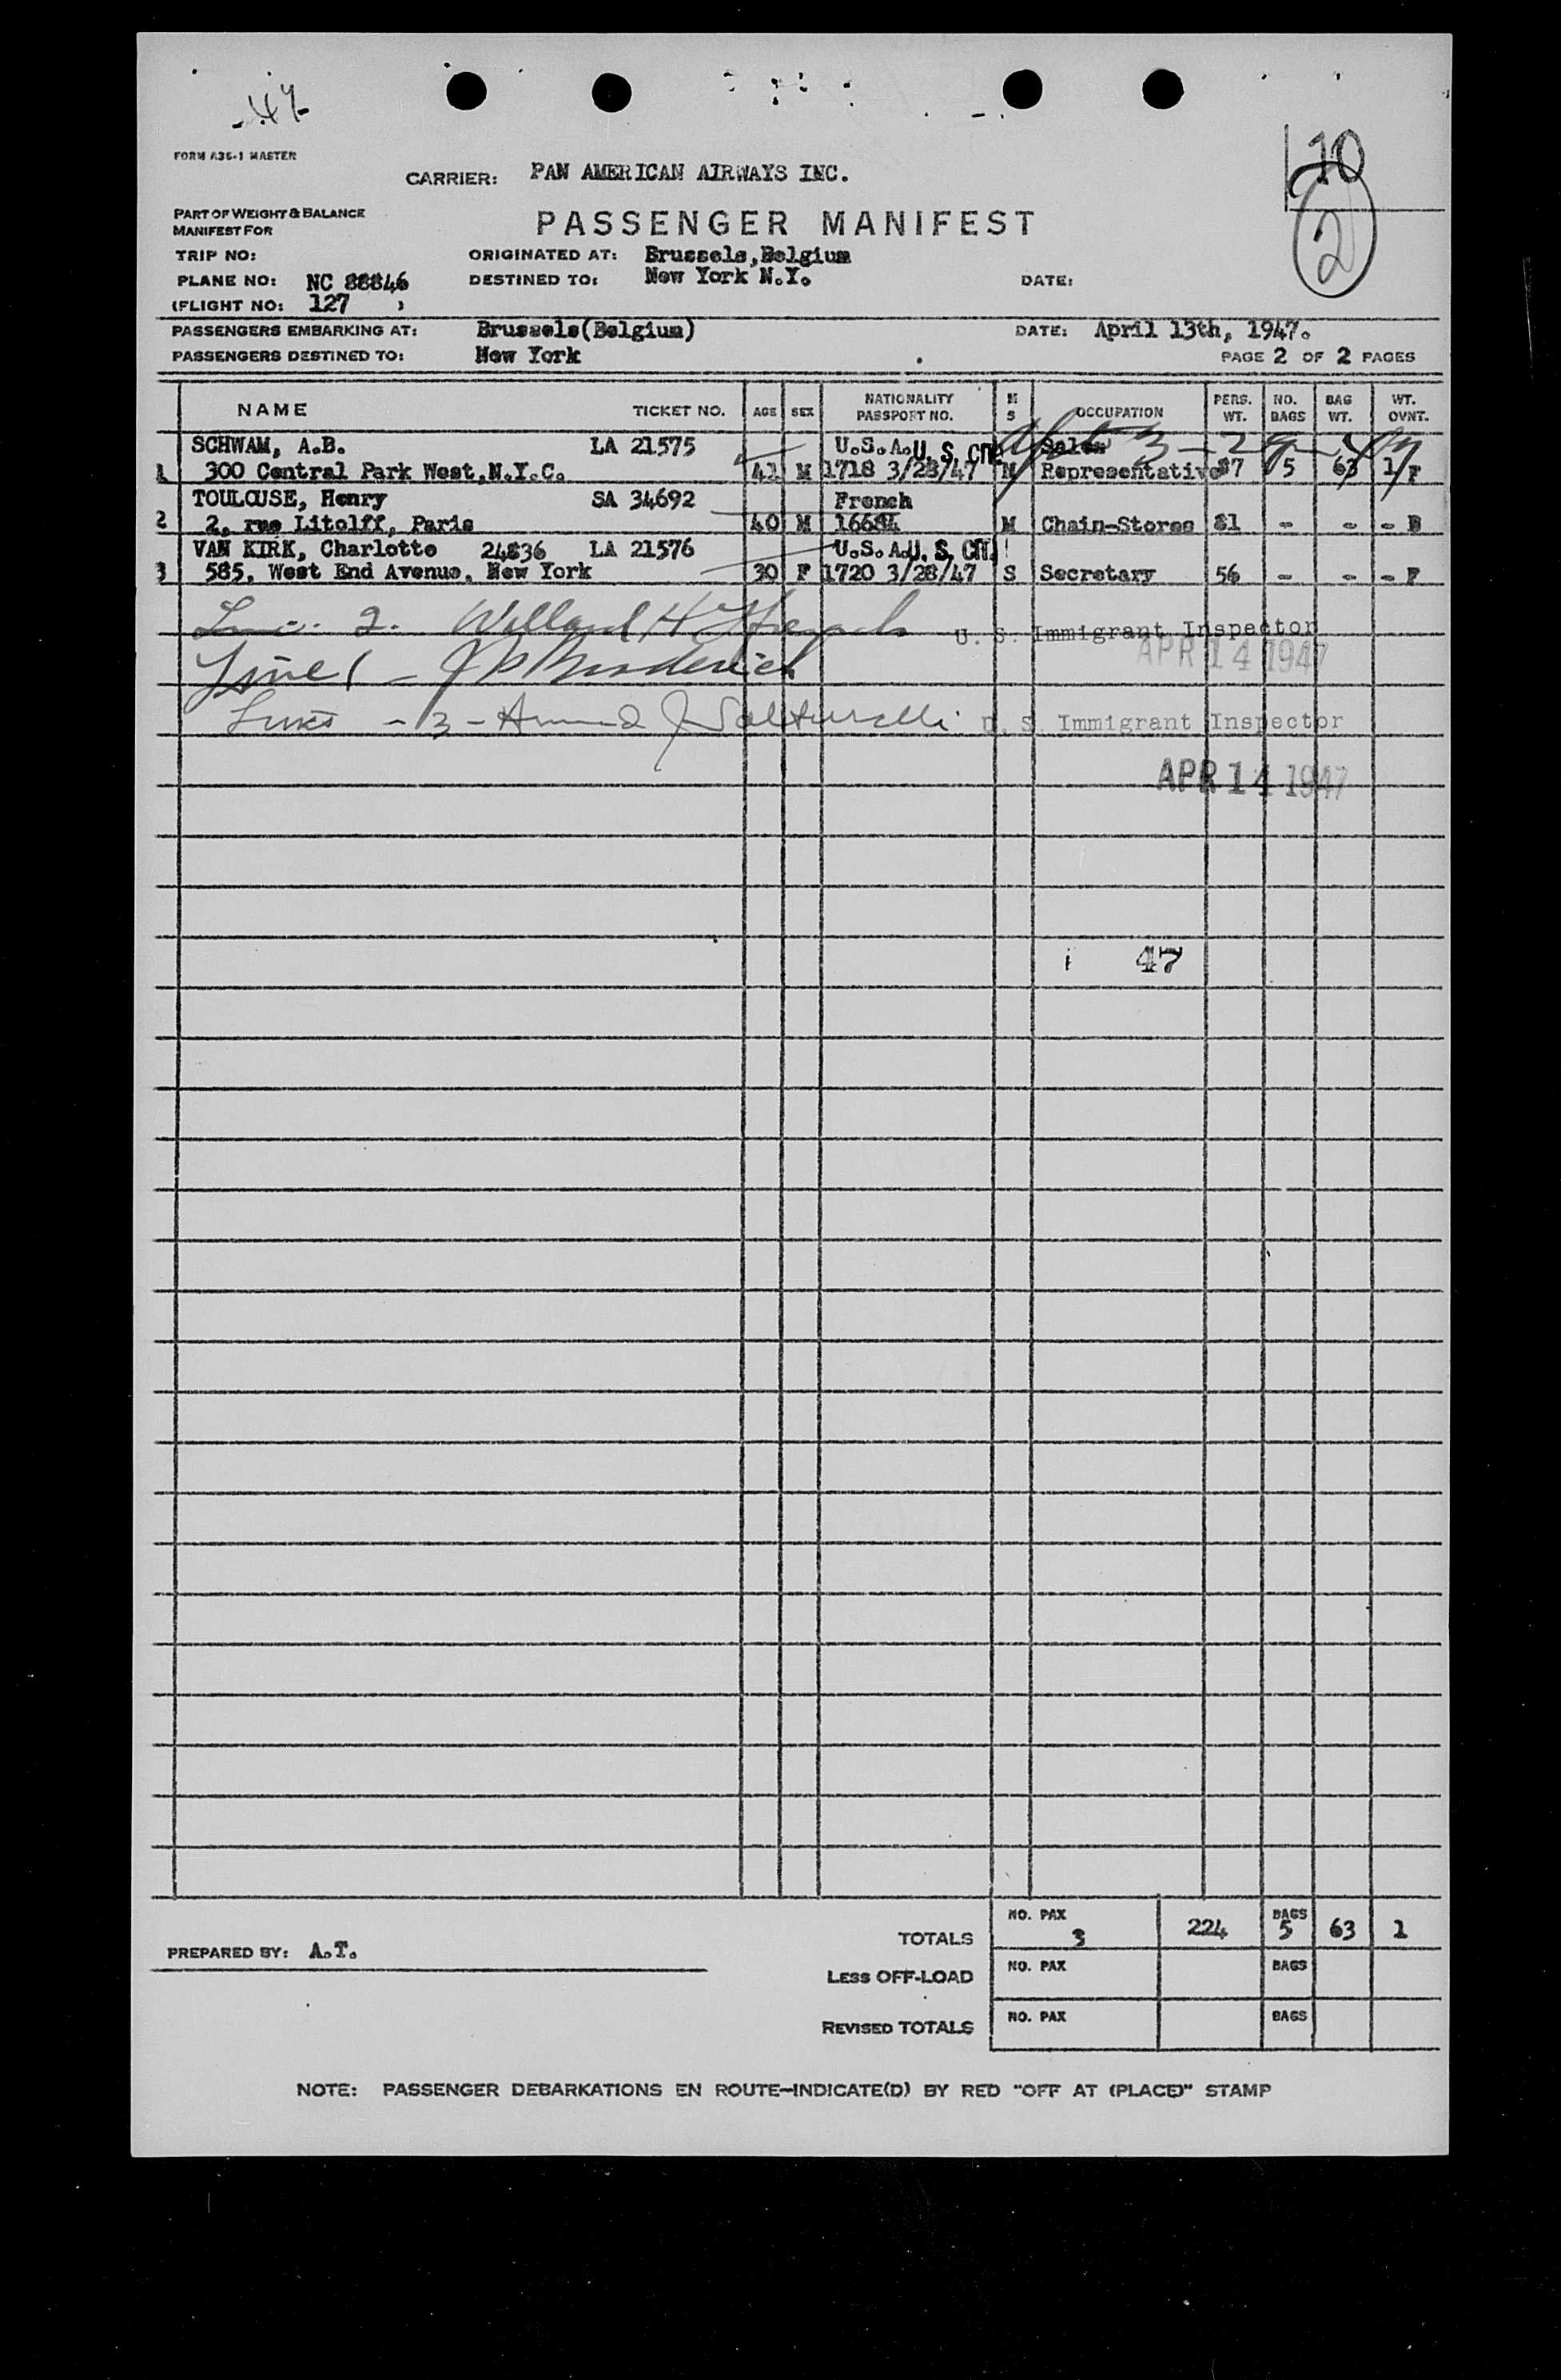 -47-
FORM A36-1 MASTER
10
CARRIER: PAN AMERICAN AIRWAYS INC.
PART OF WEIGHT & BALANCE
MANIFEST FOR
PASSENGER MANIFEST
2
TRIP NO: ORIGINATED AT: Brussels,Belgium
PLANE NO: NC 88846 DESTINED TO: New York N.Y. DATE:
(FLIGHT NO: 127 )
PASSENGERS EMBARKING AT: Brussels(Belgium) DATE: April 13th, 1947.
PASSENGERS DESTINED TO: New York PAGE 2 OF 2 PAGES
NAME TICKET NO. AGE SEX NATIONALITY PASSPORT NO. M S OCCUPATION PERS. WT. NO. BAGS BAG WT. WT. OVNT.
SCHWAM, A.B. LA 21575 U.S.A. U. S. CIT. Sales
1 300 Central Park West,N.Y.C. 41 M 1718 3/28/47 M Representative 87 5 63 1 F
TOULOUSE, Henry SA 34692 French
2 2, rue Litolff, Paris 40 M 16684 M Chain-Stores 81 - - - B
VAN KIRK, Charlotte 24836 LA 21576 U.S.A. U. S. CIT.
3 585, West End Avenue, New York 30 F 1720 3/28/47 S Secretary 56 - - - F
2. Willard H U. S. Immigrant Inspector
APR 14 1947
Line 1 - J P Broderick
- 3 - Armand J U. S. Immigrant Inspector
APR 14 1947
47
TOTALS NO. PAX 3 224 BAGS 5 63 1
PREPARED BY: A.T.
LESS OFF-LOAD NO. PAX BAGS
REVISED TOTALS NO. PAX BAGS
NOTE: PASSENGER DEBARKATIONS EN ROUTE-INDICATE(D) BY RED "OFF AT (PLACE)" STAMP